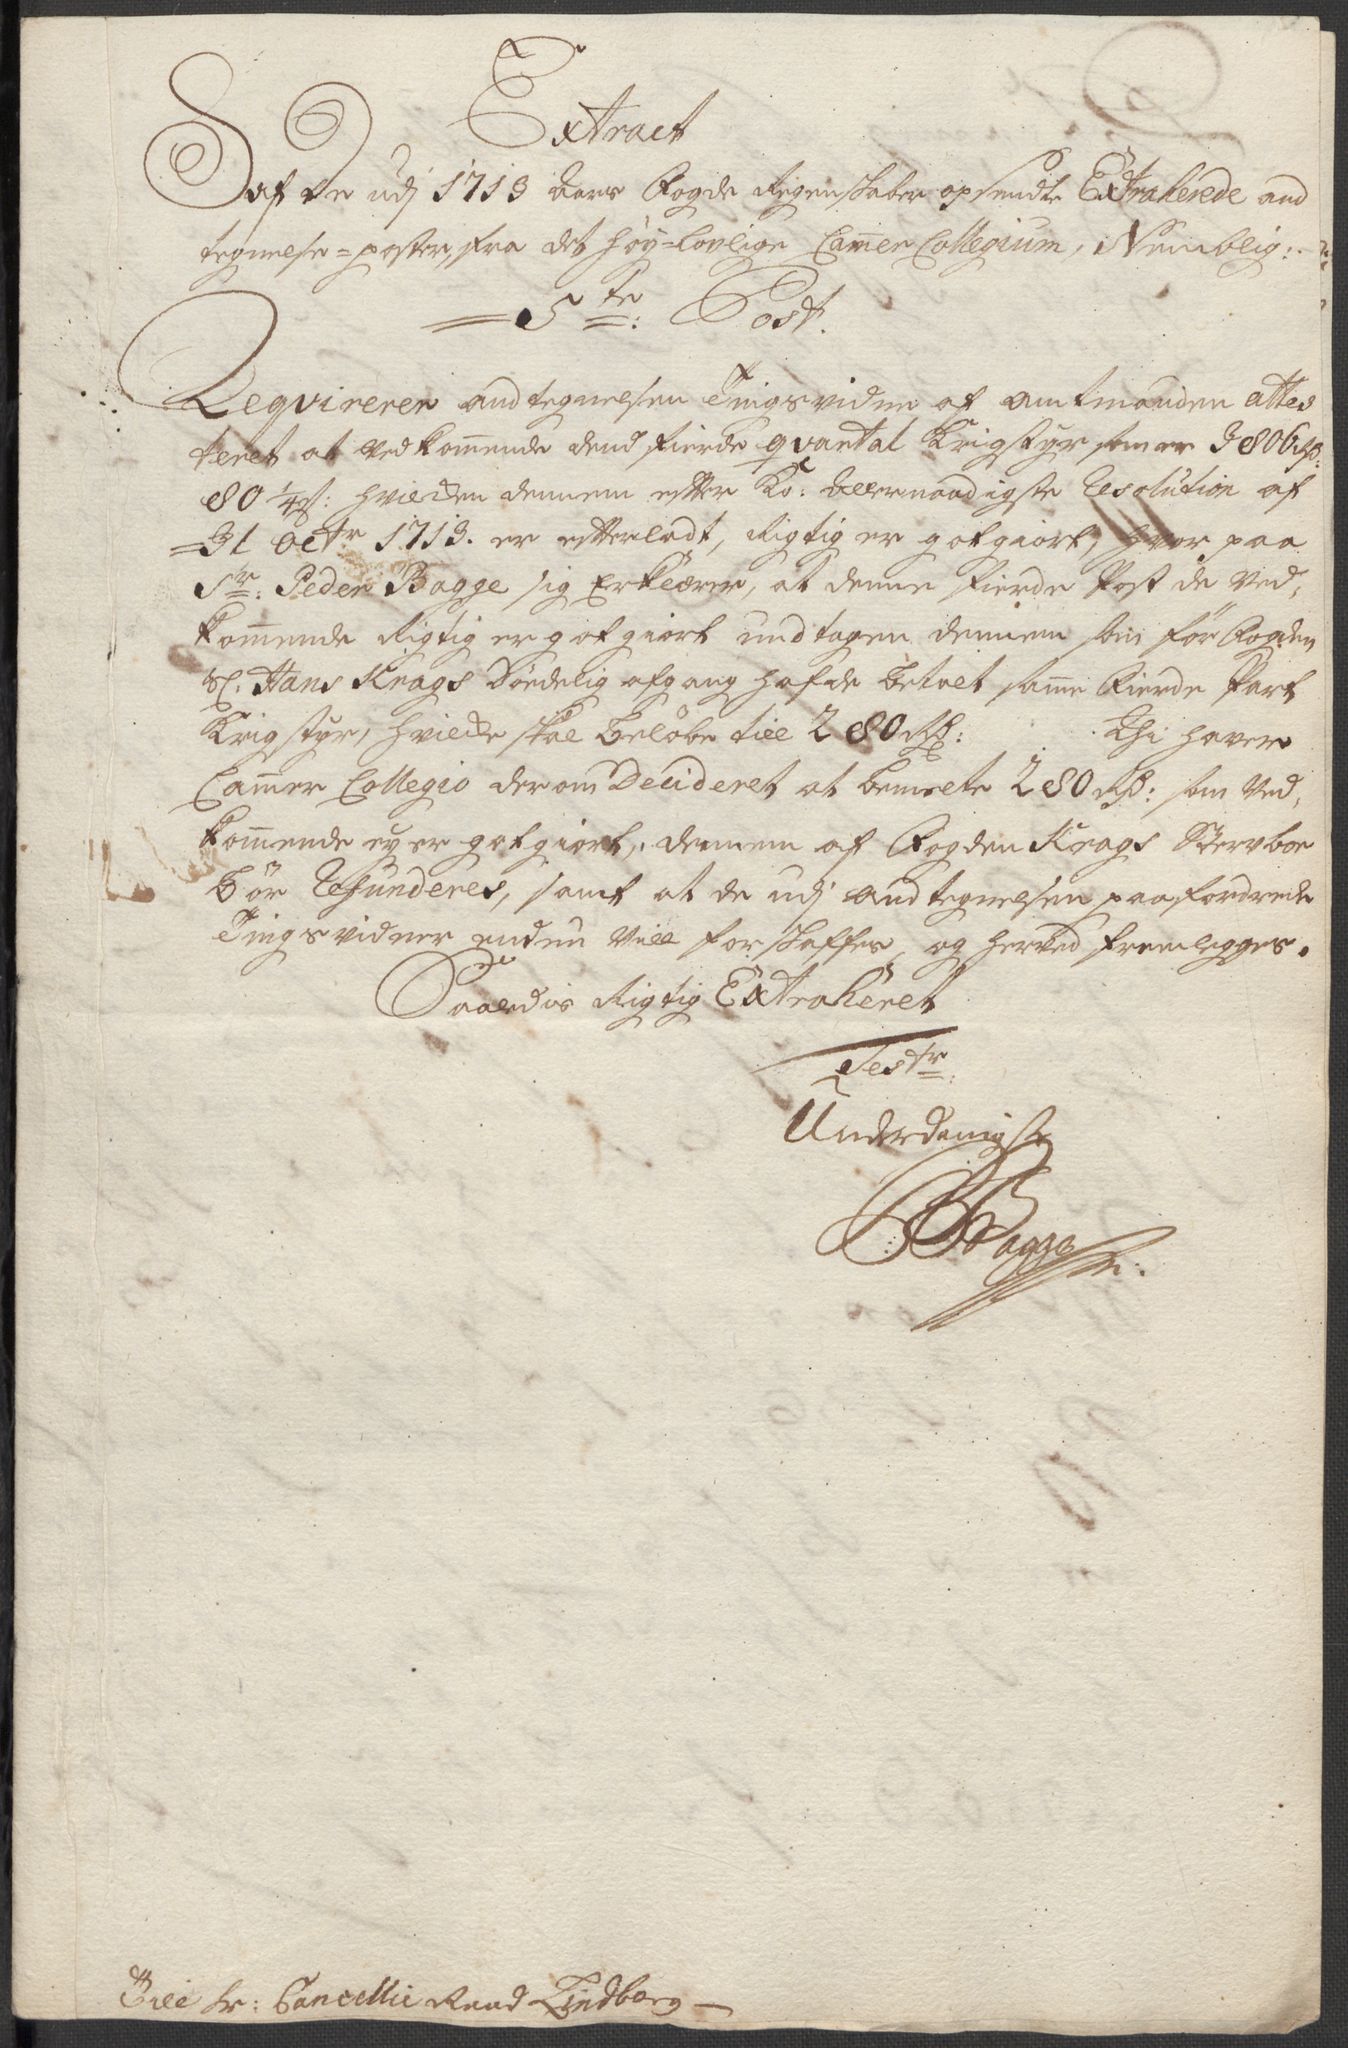 Extract
af de udj 1713 Aars Fogde Regenskaber opsendte Extraherede and
tegnelse=poster, fra det høy=lovlige Cammer Collegium, Nemblig:
5te: Post.
Reqvirerer andtegnelsen Tingsvidne af amtmanden attes
teret at vedkommende dend fierde qvartal Krigstyr som er 3806 Rd:
80 1/4 s: hvilcken dennem efter Ko: allernaadigste Resolution af
31 octr 1713. er efterladt, Rigtig er gotgiort, hvor paa
Sr: Peder Bagge sig Erklærer, at denne fierde Post de ved,
kommende Rigtig er gotgiort undtagen dennem som før Fogden
Sl. Hans Krags Dødelig afgang hafde betalt samme fierde Part
Krigstyr, hvilcke skal beløbe till 280 Rd: Thi haver
Cammer Collegio derom Decideret at bemelte 280 Rd: som ved,
kommende ey er gotgiort, dennem af Fogden Krags Sterboe
bør Refunderes, samt at de udj andtegnelsen paafordrede
Tingsvidner endnu vill forskaffes, og herved fremlegges.
Saaledis Rigtig Extraheret
Testr:
Underdanigst
PBagge
Till Hr: Cancellie Raad Lindberg